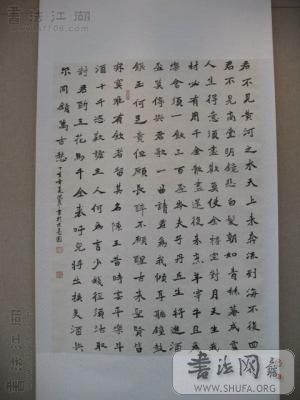 君不見黃河之水天上來奔流到海不復回
君不見高堂明鏡悲白髮朝如青絲暮成雪
人生得意須盡歡莫使金樽空對月天生我
材必有用千金散盡還復來烹羊宰牛且為
樂會須一飲三百杯岑夫子丹丘生將進酒
杯莫停與君歌一曲請君為我傾耳聽鐘鼓
饌玉何足貴但願長醉不願醒古來聖賢皆
寂寞惟有飲者留其名陳王昔時宴平樂斗
酒十千恣歡謔主人何為言少錢徑須沽取
對君酌五花馬千金裘呼兒將出換美酒與
爾同銷萬古愁 丁亥
書法江湖
書法网
WWW.SHUFA.ORG